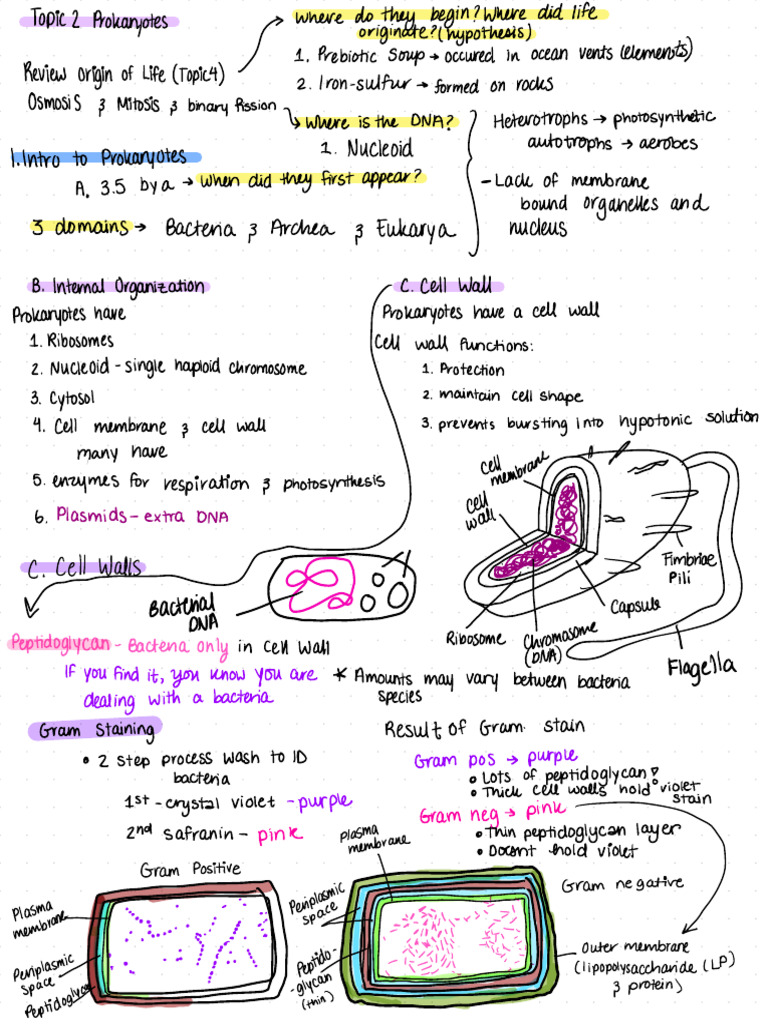 Topic 2 Prokayotes
Review Origin of Life (Topic 4)
Osmosis & Mitosis & binary fission
Where do they begin? Where did life
originate? (hypothesis)
1. Prebiotic Soup → occured in ocean vents (elements)
2. Iron-sulfur → formed on rocks
Where is the DNA?
1. Nucleoid
Heterotrophs → photosynthetic
autotrophs → aerobes
- Lack of membrane
bound organelles and
nucleus
1. Intro to Prokaryotes
A. 3.5 bya → When did they first appear?
3 domains → Bacteria & Archea & Eukarya
B. Internal Organization
Prokaryotes have
1. Ribosomes
2. Nucleoid - single haploid chromosome
3. Cytosol
4. Cell membrane & cell wall
many have
5. enzymes for respiration & photosynthesis
6. Plasmids - extra DNA
C. Cell Wall
Prokaryotes have a cell wall
Cell wall functions:
1. Protection
2. maintain cell shape
3. prevents bursting into hypotonic solution
Cell
membrane
Cell
wall
Fimbriae
Pili
Capsule
Ribosome
Chromasome
(DNA)
Flagella
C. Cell Walls
Bacterial
DNA
Peptidoglycan - Bacteria only in Cell Wall
If you find it, you know you are
dealing with a bacteria
* Amounts may vary between bacteria
species
Gram Staining
• 2 step process wash to ID
bacteria
1st - crystal violet - purple
2nd safranin - pink
Result of Gram stain
Gram pos → purple
• Lots of peptidoglycan
• Thick cell walls hold violet
stain
Gram neg → pink
• Thin peptidoglycan layer
• Doesnt hold violet
Gram Positive
Plasma
membrane
Periplasmic
space
Peptidoglycan
plasma
membrane
Periplasmic
space
Peptido-
glycan
(thin)
Gram negative
Outer membrane
(lipopolysaccharide (LP)
& protein)